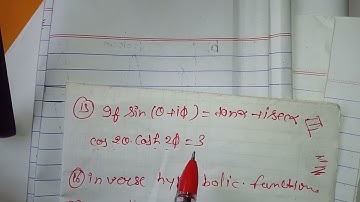 (15) If sin(θ+iϕ) = tanα + i secα
cos 2θ. cosh 2ϕ = 3
(16) inverse hyperbolic. function